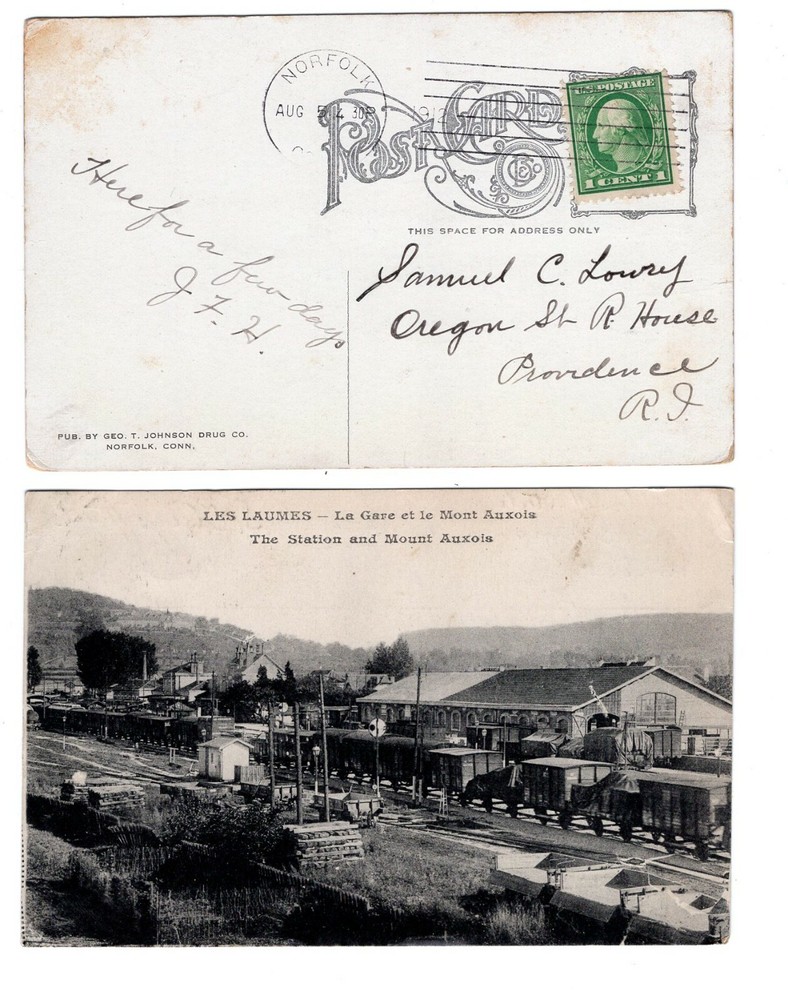 NORFOLK
AUG 5 4 30P
191
POST CARD
U.S. POSTAGE
1 CENT 1
THIS SPACE FOR ADDRESS ONLY
Here for a few days
J. F. H.
Samuel C. Lowry
Oregon St R. House
Providence
R.I
PUB. BY GEO. T. JOHNSON DRUG CO.
NORFOLK, CONN.
LES LAUMES — La Gare et le Mont Auxois
The Station and Mount Auxois